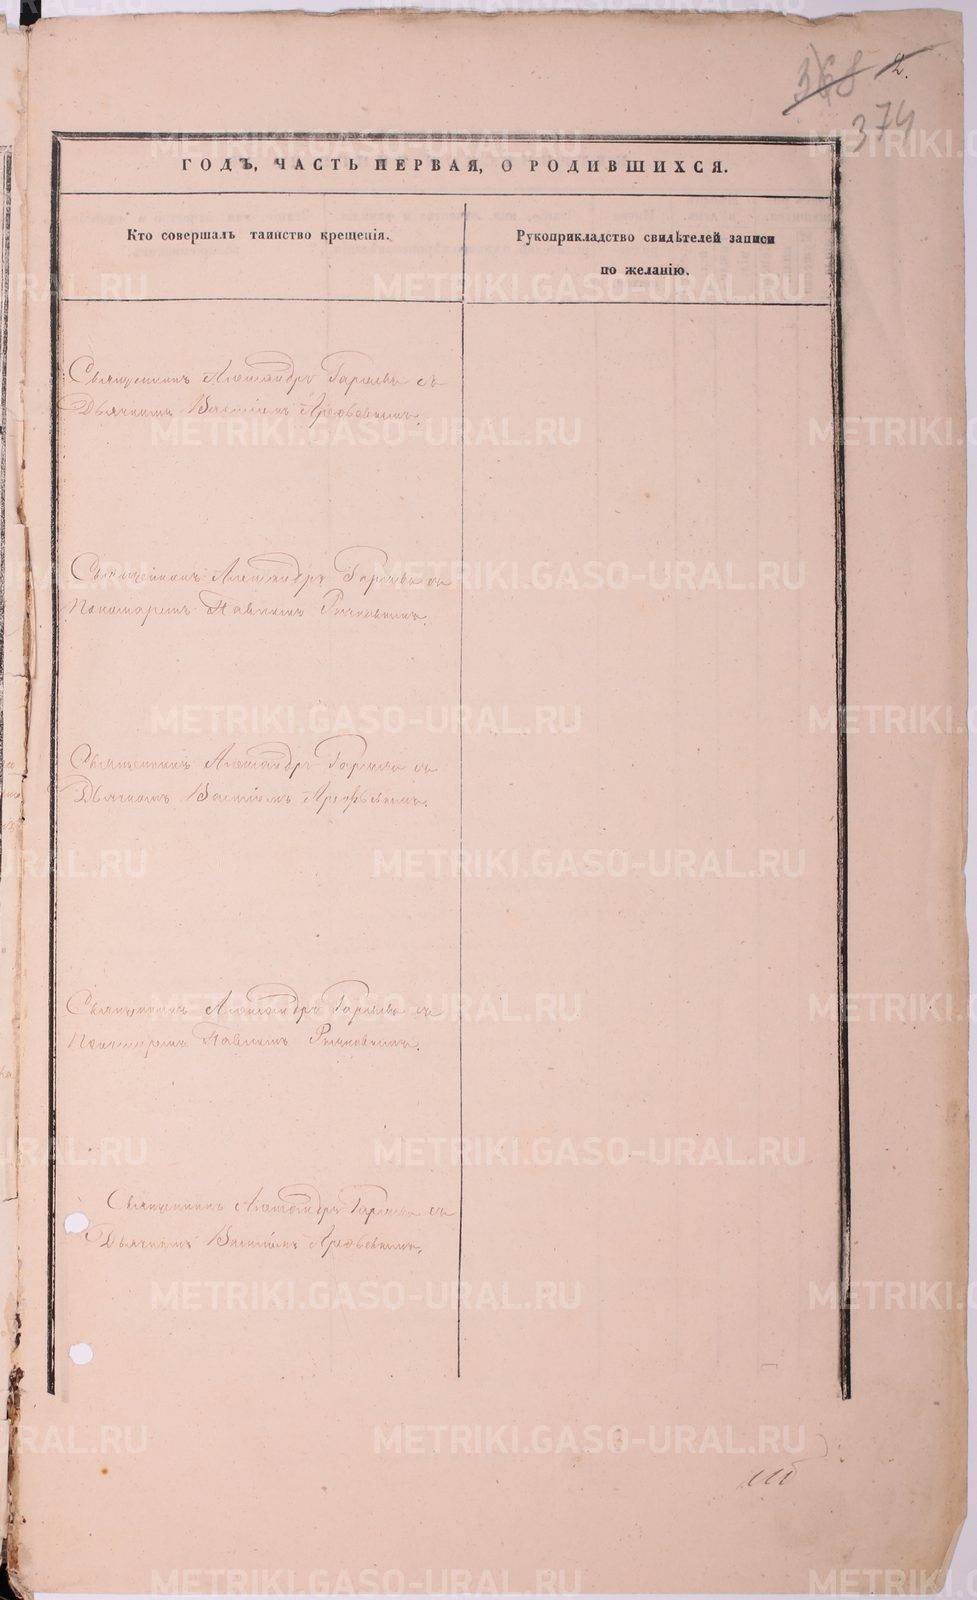 368 2.
374
ГОДЪ, ЧАСТЬ ПЕРВАЯ, О РОДИВШИХСЯ.
Кто совершалъ таинство крещенія.
Рукоприкладство свидѣтелей записи
по желанію.
Священникъ Александръ Гаряевъ съ
Дьячкомъ Василіемъ
Священникъ Александръ Гаряевъ съ
Пономаремъ Павломъ Рычковымъ.
Священникъ Александръ Гаряевъ съ
Дьячкомъ Василіемъ
Священникъ Александръ Гаряевъ съ
Пономаремъ Павломъ Рычковымъ.
Священникъ Александръ Гаряевъ съ
Дьячкомъ Василіемъ
METRIKI.GASO-URAL.RU